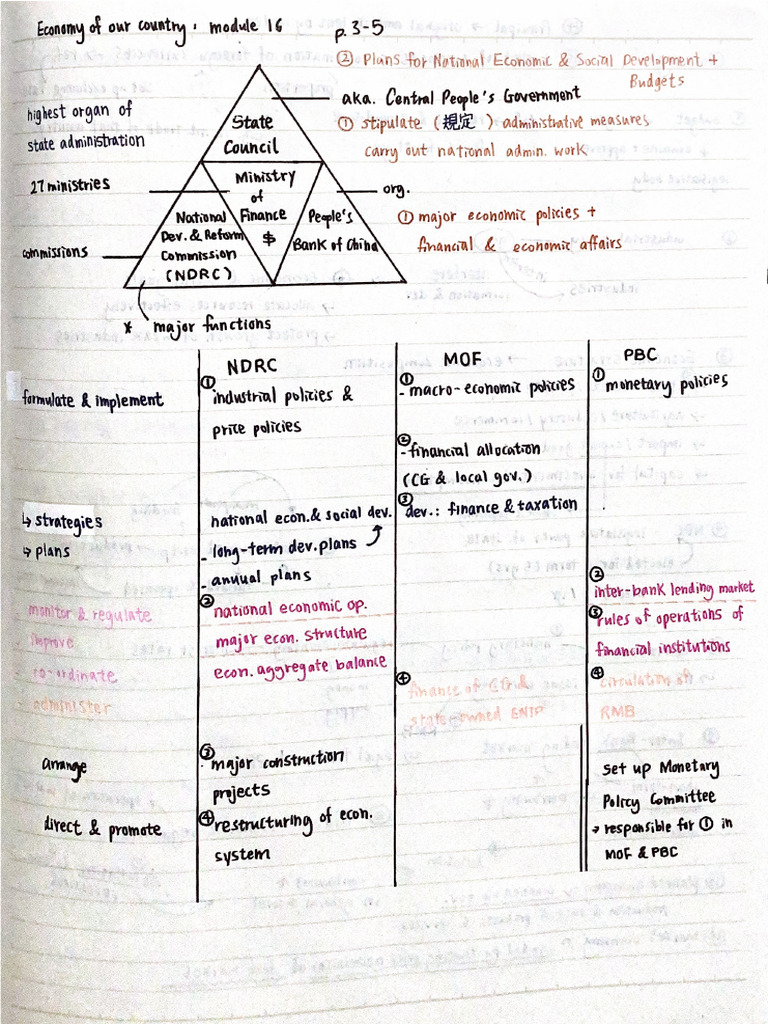 Economy of our country: module 16 p.3-5
② Plans for National Economic & Social Development +
Budgets
aka. Central People's Government
highest organ of
state administration
State
Council
① stipulate (規定) administrative measures
carry out national admin. work
27 ministries
Ministry
of
Finance
$
org.
National
Dev. & Reform
Commission
(NDRC)
People's
Bank of China
① major economic policies +
financial & economic affairs
commissions
* major functions
NDRC MOF PBC
formulate & implement
① industrial policies &
price policies
① - macro-economic policies
① monetary policies
② - financial allocation
(CG & local gov.)
↳ strategies
national econ. & social dev.
③ dev.: finance & taxation
→ plans
- long-term dev. plans
- annual plans
② inter-bank lending market
monitor & regulate
② national economic op.
③ rules of operations of
improve
major econ. structure
financial institutions
co-ordinate
econ. aggregate balance
administer
④ finance of CG &
state-owned ENTP
④ circulation of
RMB
arrange
③ major construction
projects
set up Monetary
Policy Committee
direct & promote
④ restructuring of econ.
system
→ responsible for ① in
MOF & PBC